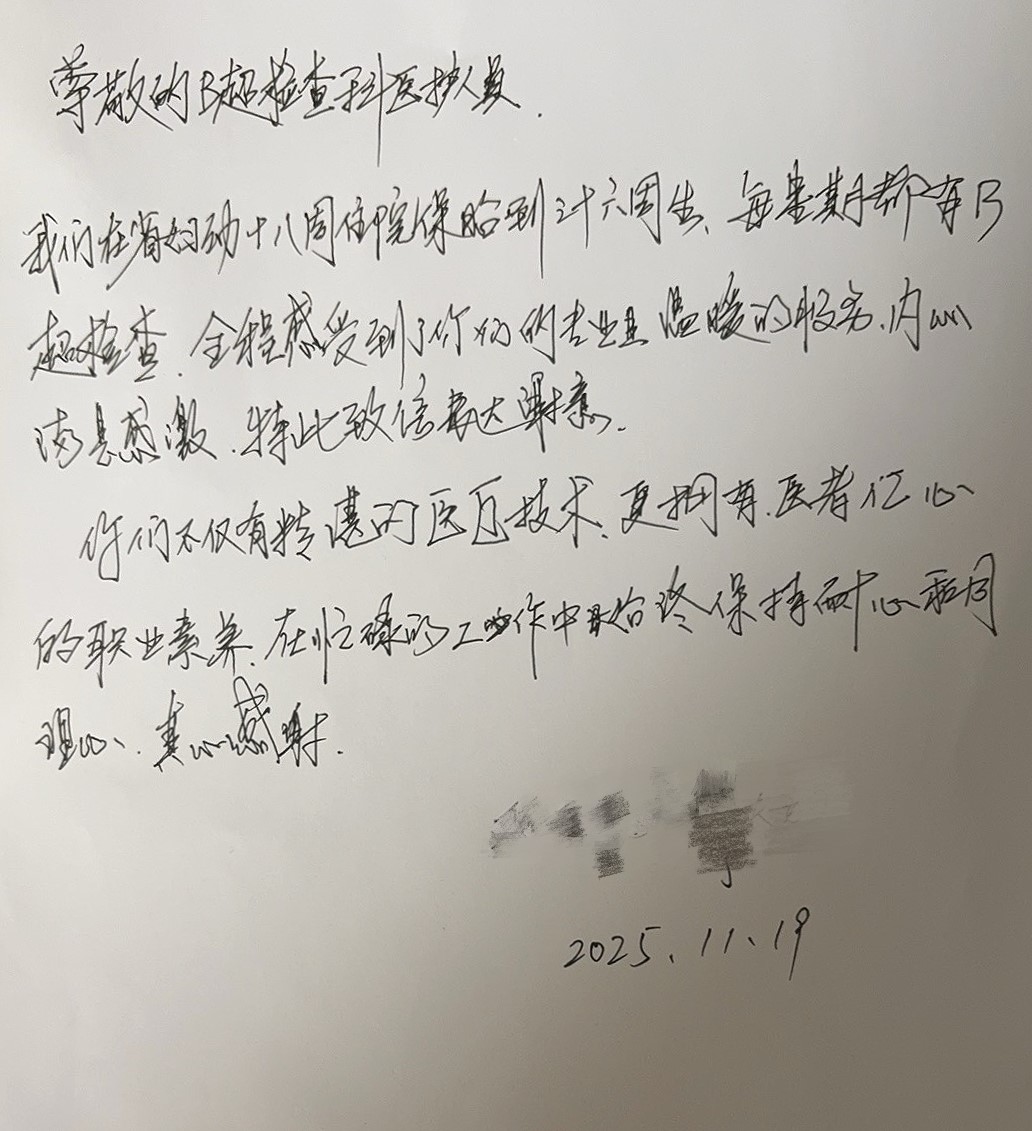 尊敬的B超检查科医护人员.
我们在省妇幼十八周住院保胎到三十六周生、每星期都有B
超检查.全程感受到了你们的专业且温暖的服务、内心
满是感激.特此致信表达谢意.
你们不仅有精湛的医医技术、更拥有.医者仁心
的职业素养、在忙碌的工作中始终保持耐心和同
理心、真心感谢.
2025、11、19